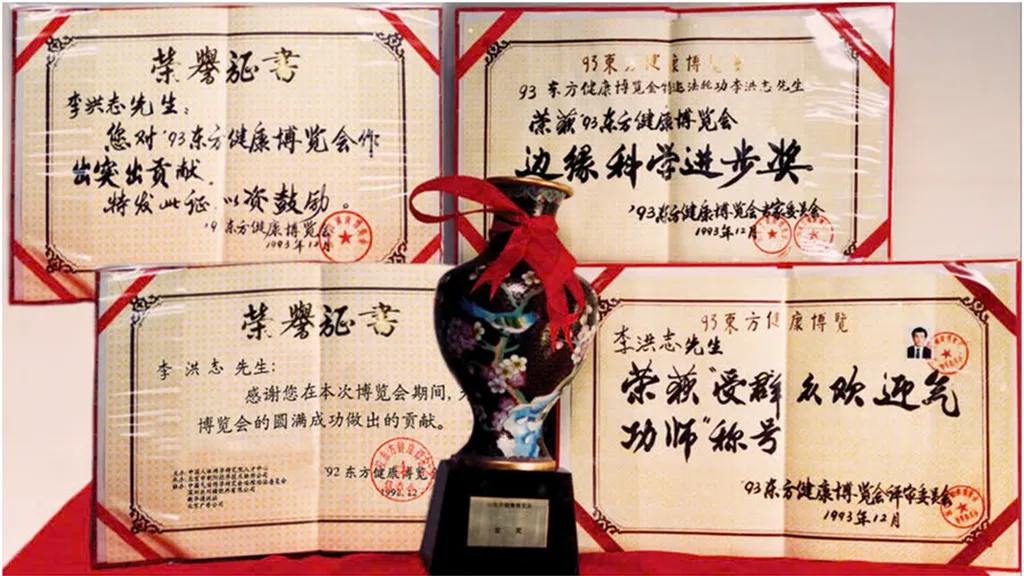 荣誉证书
李洪志先生:
您对'93东方健康博览会作
出突出贡献.
特发此证 以资鼓励。
东方健康博览会
1993年12月
93東方健康博览会
93 东方健康博览会 法轮功李洪志先生
荣获'93东方健康博览会
边缘科学进步奖
'93东方健康博览会专家委员会
1993年12月
荣誉证书
李洪志先生:
感谢您在本次博览会期间,
博览会的圆满成功做出的贡献。
'92 东方健康博览会
1992.12
93東方健康博览
李洪志先生
荣获"受群众欢迎气
功师"称号
93东方健康博览会评审委员会
1993年12月